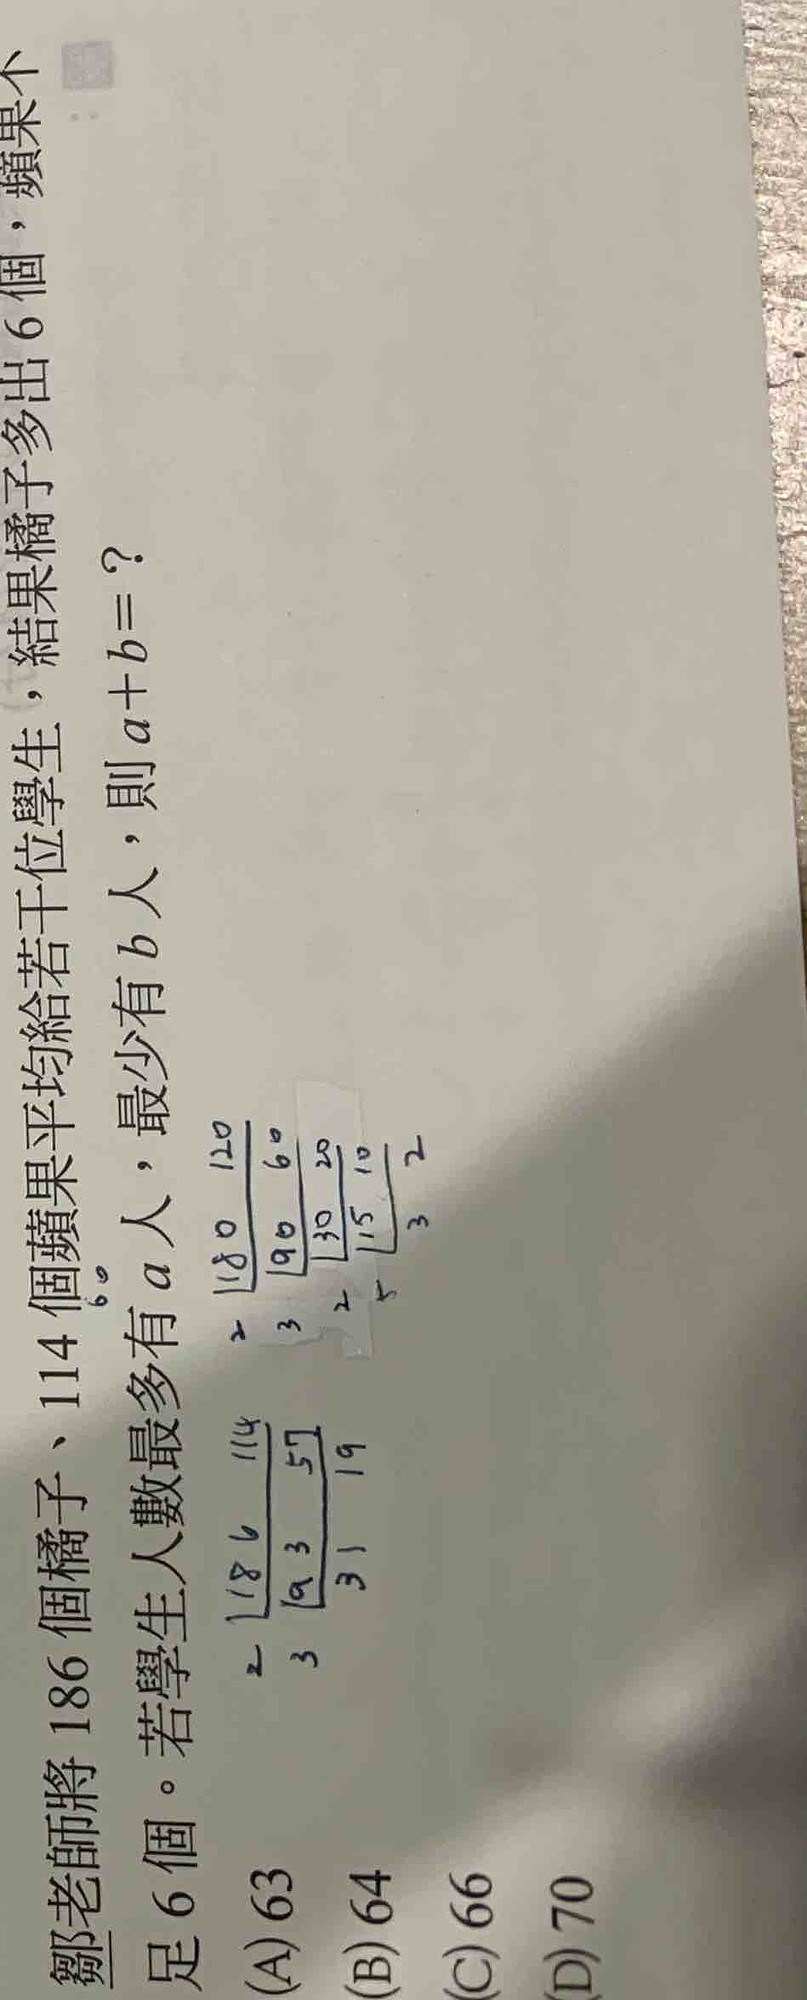 鄒老師將 186 個橘子、114 個蘋果平均給若干位學生，結果橘子多出 6 個，蘋果不
60
足 6 個。若學生人數最多有 a 人，最少有 b 人，則 a＋b＝？
(A) 63
(B) 64
(C) 66
(D) 70
2 186 114
3 93 57
31 19
2 180 120
3 90 60
2 30 20
5 15 10
3 2